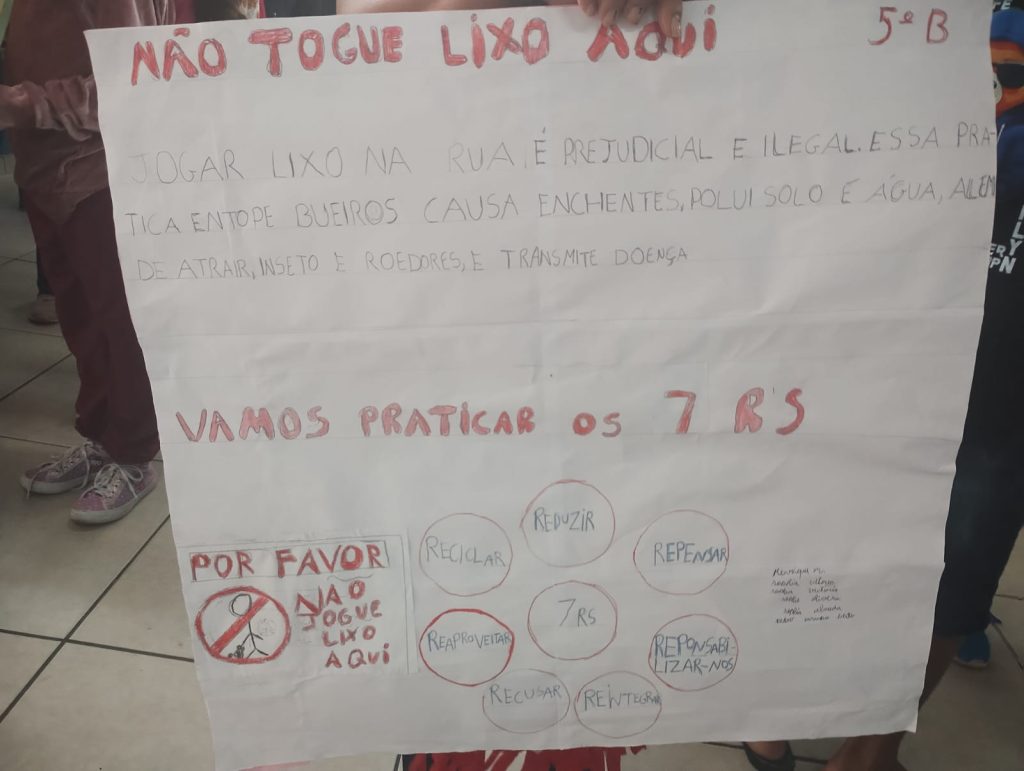 NÃO TOGUE LIXO AQUI
5º B
JOGAR LIXO NA RUA, É PREJUDICIAL E ILEGAL. ESSA PRA-
TICA ENTOPE BUEIROS CAUSA ENCHENTES, POLUI SOLO E ÁGUA, ALÉM
DE ATRAIR, INSETO E ROEDORES, E TRANSMITE DOENÇA
VAMOS PRATICAR OS 7 R'S
POR FAVOR
NÃO
JOGUE
LIXO
AQUI
REDUZIR
RECICLAR
REPENSAR
7 RS
REAPROVEITAR
REPONSABI-
LIZAR-NOS
RECUSAR
REINTEGRAR
Henrique M.